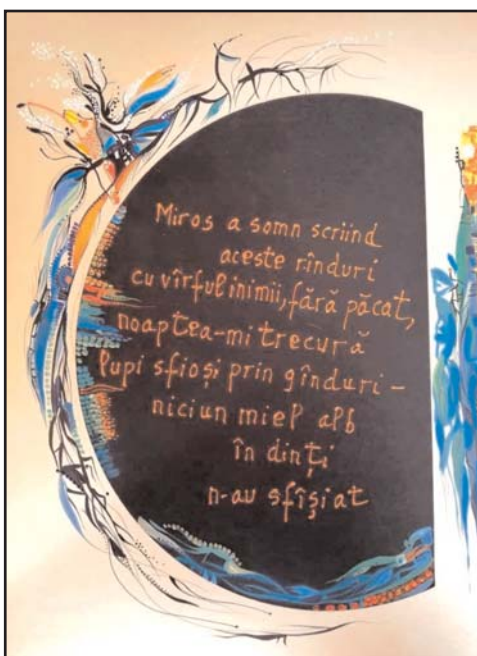 Miros a somn scriind
aceste rînduri
cu vîrful inimii, fără păcat,
noaptea-mi trecură
lupi sfioși prin gînduri –
niciun miel alb
în dinți
n-au sfîșiat